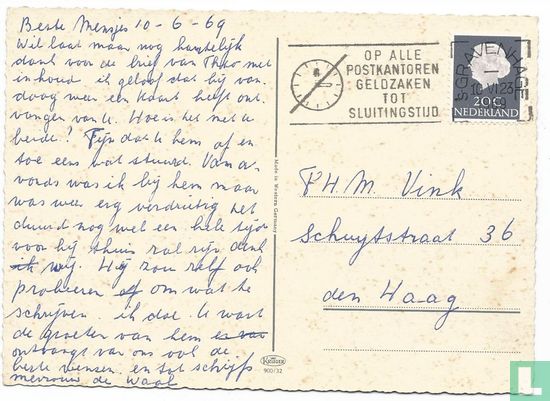 Beste Mensjes 10-6-69
Wil laat maar nog hartelijk
dank voor de brief van Theo met
inhoud ik geloof dat hij van
daag weer een kaart heeft ont
vangen van U. Hoe is het met u
beide? Fijn dat U hem af en
toe eens wat stuurd. Van a-
vonds was ik bij hem maar
was weer erg verdrietig het
duurd nog wel een hele tijd
voor hij thuis zal zijn denk
ik wij. Hij zou zelf ook
proberen of om wat te
schrijven. ik doe U vast
de groeten van hem
ontvangt van ons ook de
beste wensen en tot schrijfs
mevrouw de Waal
OP ALLE
POSTKANTOREN
GELDZAKEN
TOT
SLUITINGSTIJD
'S-GRAVENHAGE
1
10 VI 23
20c
NEDERLAND
Made in Western Germany
P.H.M. Vink
Schuytstraat 36
den Haag
Krüger
900/32
© LastDodo